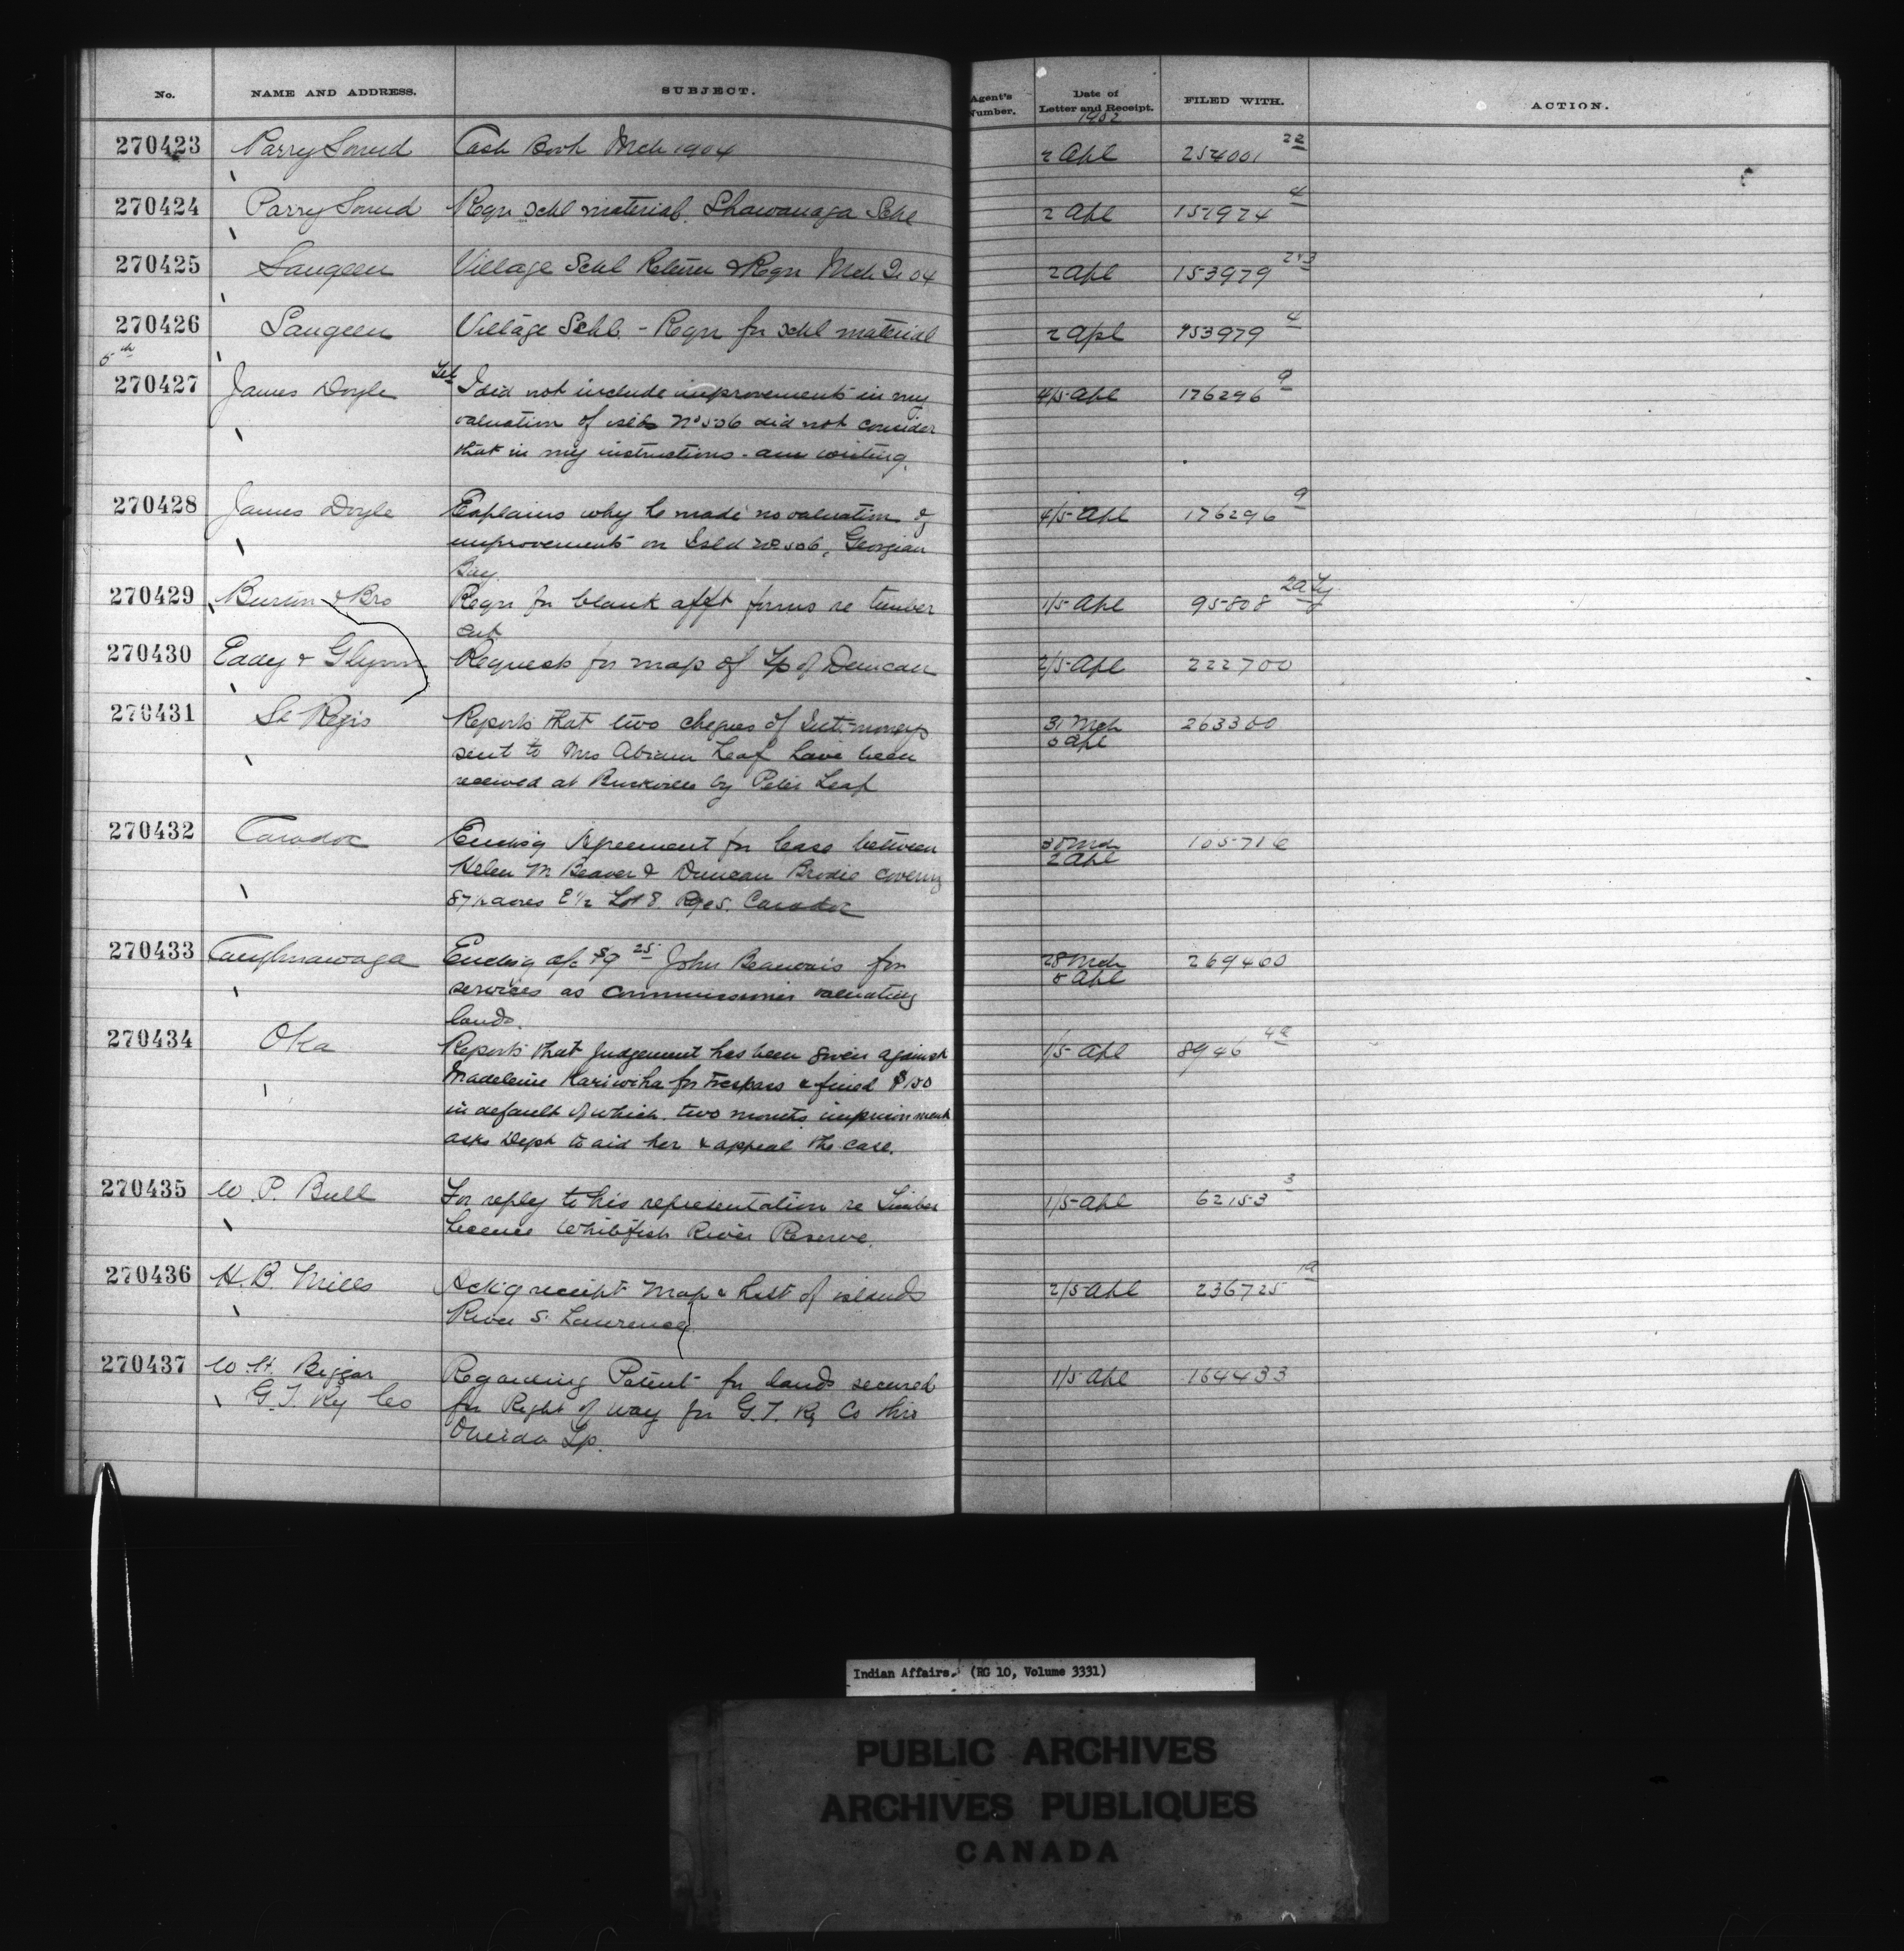 No. NAME AND ADDRESS. SUBJECT. Agent's Number. Date of Letter and Receipt. FILED WITH. ACTION.
270423 Parry Sound Cash Book Mch 1904 2 Apl 254001 22
270424 Parry Sound Reqn Schl material. Shawanaga Schl 2 Apl 151974 4
270425 Saugeen Village Schl Return & Reqn Mch Qr 04 2 Apl 153979
270426 Saugeen Village Schl. - Reqn for schl material 2 Apl 153979 4
5th
270427 James Doyle Tel I did not include improvements in my 4/5 Apl 176296 9
valuation of No 506 did not consider
that in my instructions - am writing.
270428 James Doyle Explains why he made no valuation of 4/5 Apl 176296 9
improvements on Isld No 506, Georgian
Bay.
270429 & Bro Reqn for blank afft forms re timber 1/5 Apl 95808
cut.
270430 Eady & Glynn Requests for map of Tp of Duncan 2/5 Apl 222700
270431 St Regis Reports that two cheques of Intt moneys 31 Mch 263300
5 Apl
sent to Mrs Abram Leaf have been
received at by Peter Leaf
270432 Caradoc Enclsg Agreement for lease between 105716
2 Apl
Helen M Beaver & Duncan Brodie covering
87½ acres E½ Lot 8. Rge 5. Caradoc
270433 Caughnawaga Enclsg a/c $9 25 John Beauvais for 28 Mch 269460
5 Apl
services as Commissioner valuating
lands.
270434 Oka Reports that judgement has been given against 1/5 Apl 8946
Madeleine Kariwiha for trespass & fined $150
in default of which, two months imprisonment
asks Dept to aid her & appeal the case.
270435 W. P. Bull For reply to his representation re Timber 1/5 Apl 62153 3
license Whitefish River Reserve.
270436 H. B. Mills Ackg receipt Map & list of islands 2/5 Apl 236725 1a
River S. Lawrence
270437 W. H. Biggar Regarding Patent for lands secured 1/5 Apl 164433
G. T. Ry Co for Right of way for G. T. Ry Co thro
Oneida Tp.
Indian Affairs. (RG 10, Volume 3331)
PUBLIC ARCHIVES
ARCHIVES PUBLIQUES
CANADA